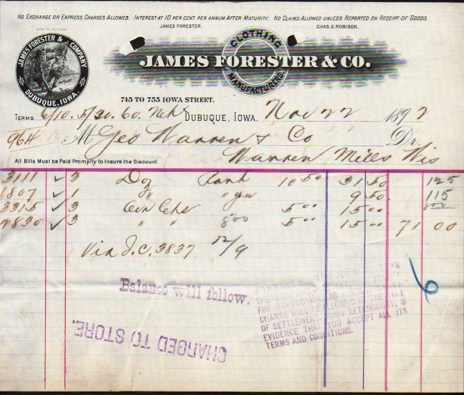 NO EXCHANGE OR EXPRESS CHARGES ALLOWED. INTEREST AT 10 PER CENT PER ANNUM AFTER MATURITY. NO CLAIMS ALLOWED UNLESS REPORTED ON RECEIPT OF GOODS.
JAMES FORESTER. CHAS. S. ROBISON.
JAMES FORESTER & COMPANY
DUBUQUE, IOWA.
CLOTHING
JAMES FORESTER & CO.
MANUFACTURERS
745 TO 755 IOWA STREET.
TERMS DUBUQUE, IOWA. Nov 22 1892
M Geo Warren & Co Dr.
Warren Mills Wis
All Bills Must be Paid Promptly to Insure the Discount.
3111 3 Dz 10 50 31 50 125
1807 1 " 9 50 115
3315 3 5 00 15 00
2830 3 " " 5 00 15 00 71 00
Via I.C. 3837 12/9
6
Balance will follow.
OF SETTLEMENT
EVIDENCE THAT YOU ACCEPT ALL ITS
TERMS AND CONDITIONS.
CHARGED TO STORE.